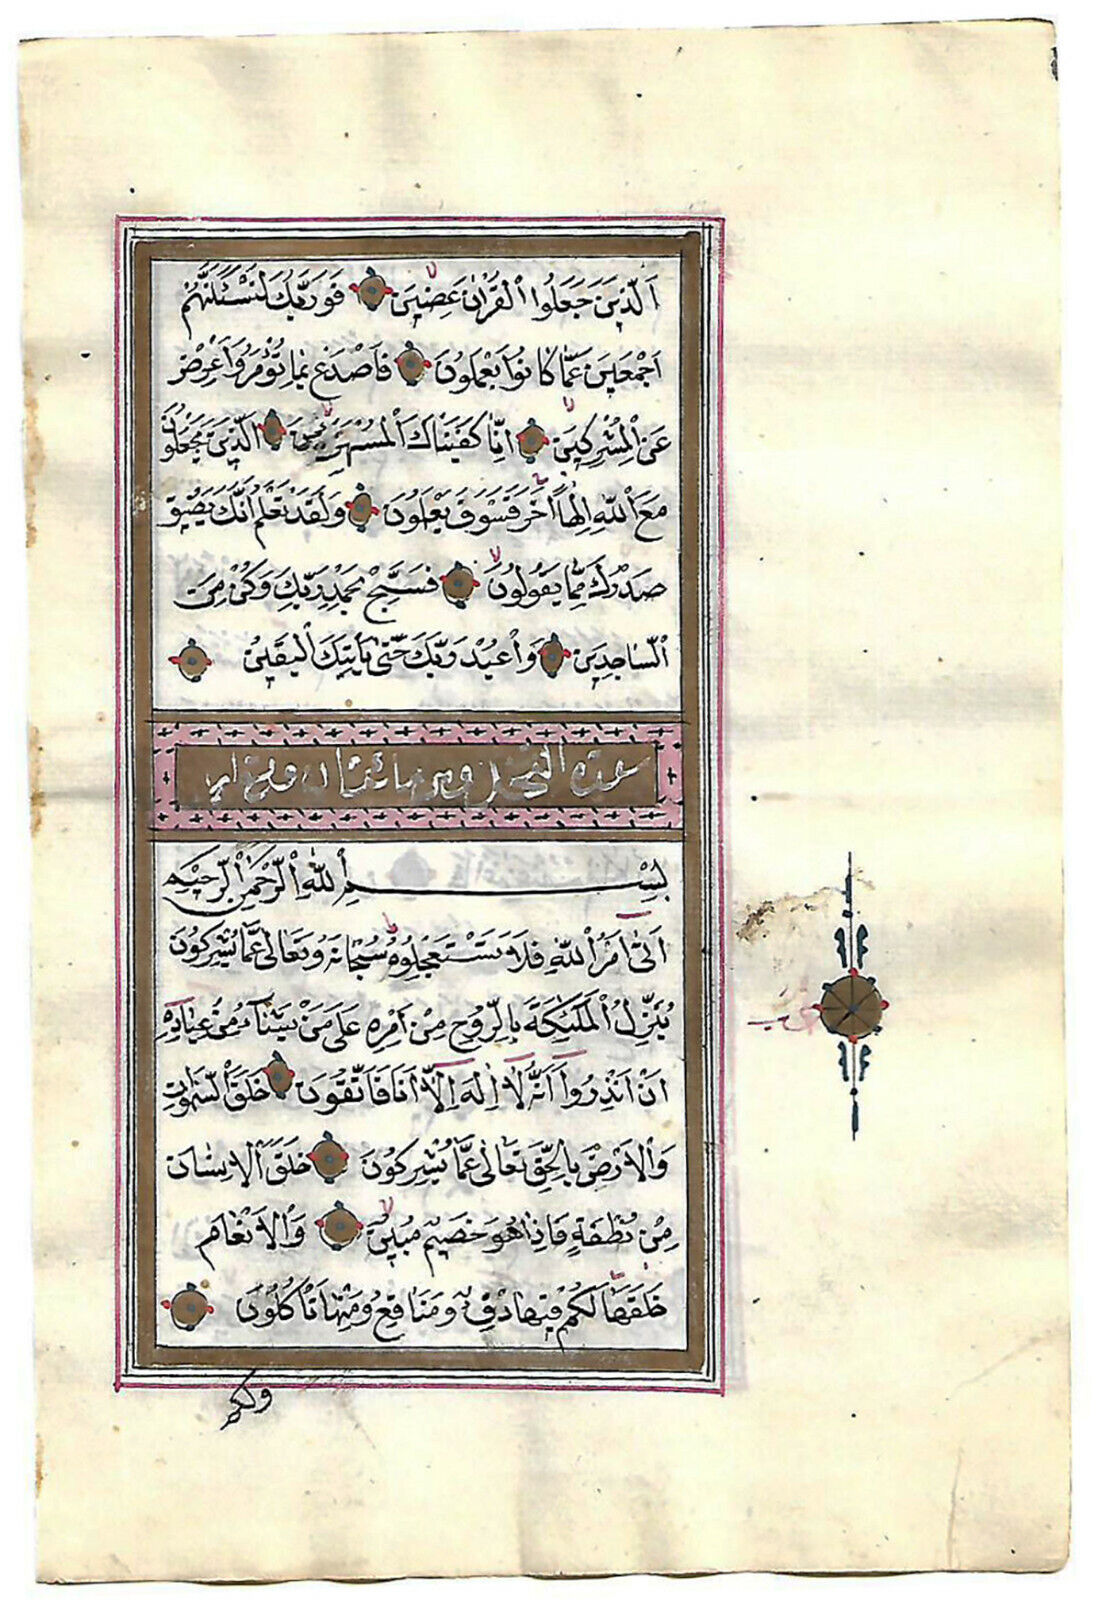 اَلَّذِينَ جَعَلُوا الْقُرْاٰنَ عِضِينَ فَوَرَبِّكَ لَنَسْئَلَنَّهُمْ
اَجْمَعِينَ عَمَّا كَانُوا يَعْمَلُونَ فَاصْدَعْ بِمَا تُؤْمَرُ وَاَعْرِضْ
عَنِ الْمُشْرِكِينَ اِنَّا كَفَيْنَاكَ الْمُسْتَهْزِئِينَ الَّذِينَ يَجْعَلُونَ
مَعَ اللّٰهِ اِلٰهًا اٰخَرَ فَسَوْفَ يَعْلَمُونَ وَلَقَدْ نَعْلَمُ اَنَّكَ يَضِيقُ
صَدْرُكَ بِمَا يَقُولُونَ فَسَبِّحْ بِحَمْدِ رَبِّكَ وَكُنْ مِنَ
السَّاجِدِينَ وَاعْبُدْ رَبَّكَ حَتّٰى يَأْتِيَكَ الْيَقِينُ
سورة النحل وهى مائة وثمان
بِسْمِ اللّٰهِ الرَّحْمٰنِ الرَّحِيمِ
اَتٰى اَمْرُ اللّٰهِ فَلَا تَسْتَعْجِلُوهُ سُبْحَانَهُ وَتَعَالٰى عَمَّا يُشْرِكُونَ
يُنَزِّلُ الْمَلٰئِكَةَ بِالرُّوحِ مِنْ اَمْرِهِ عَلٰى مَنْ يَشَآءُ مِنْ عِبَادِهِ
اَنْ اَنْذِرُوا اَنَّهُ لَا اِلٰهَ اِلَّا اَنَا فَاتَّقُونَ خَلَقَ السَّمٰوَاتِ
وَالْاَرْضَ بِالْحَقِّ تَعَالٰى عَمَّا يُشْرِكُونَ خَلَقَ الْاِنْسَانَ
مِنْ نُطْفَةٍ فَاِذَا هُوَ خَصِيمٌ مُبِينٌ وَالْاَنْعَامَ
خَلَقَهَا لَكُمْ فِيهَا دِفْءٌ وَمَنَافِعُ وَمِنْهَا تَأْكُلُونَ
ولكم